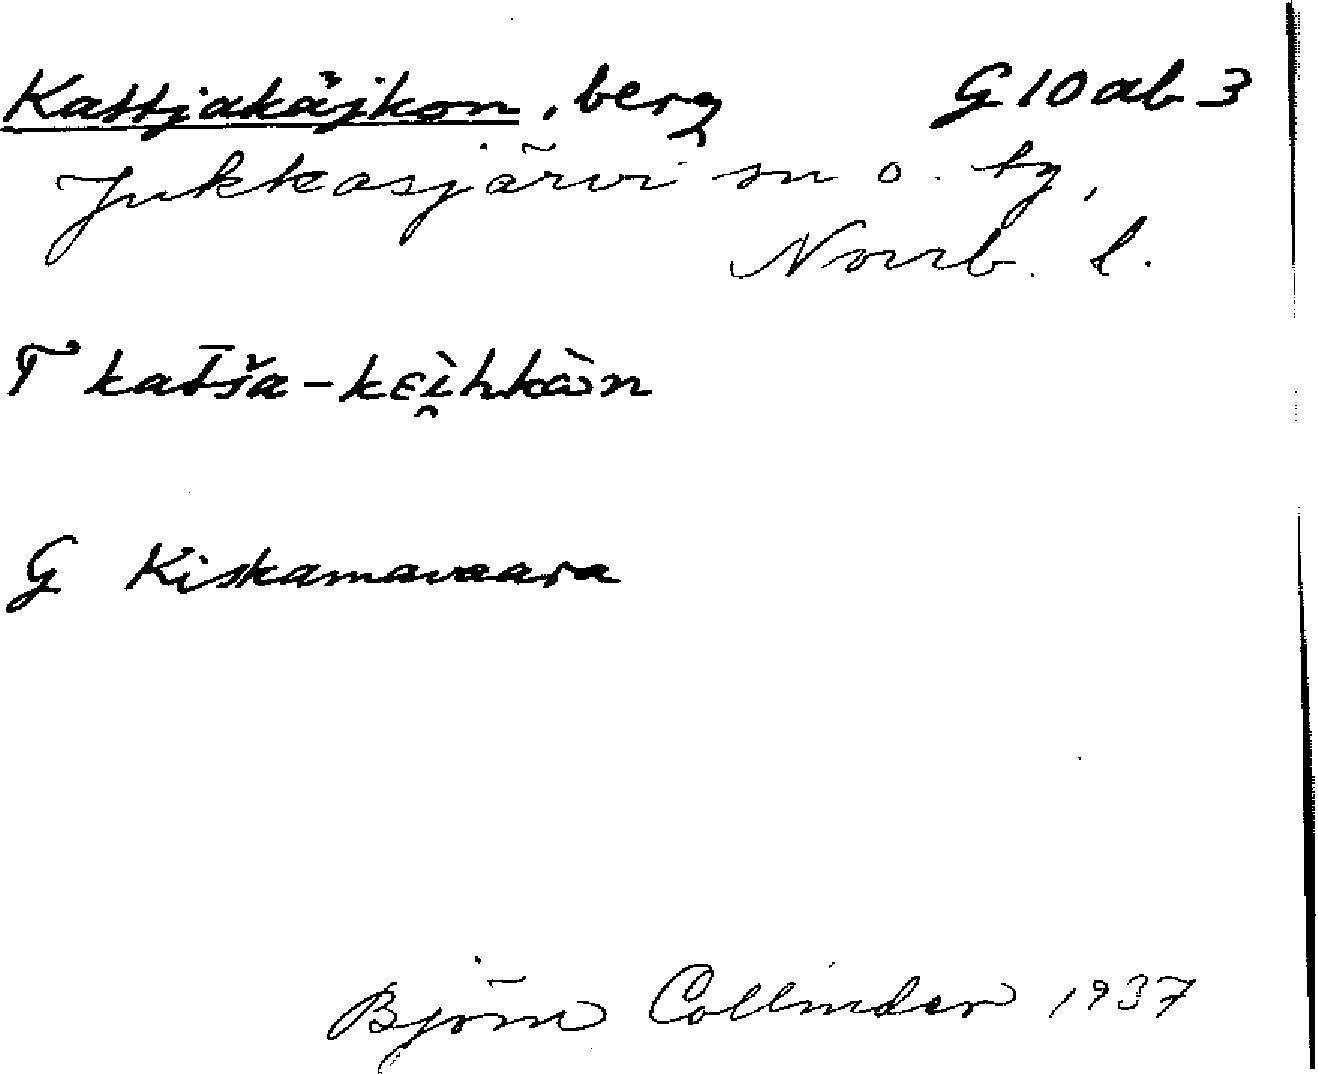 Kattjakäjkon, berg G10ab3
Jukkasjärvi sn o. tg,
Norrb. l.
T katša-kɛi̯hkàn
G Kiskamavaara
Björn Collinder 1937